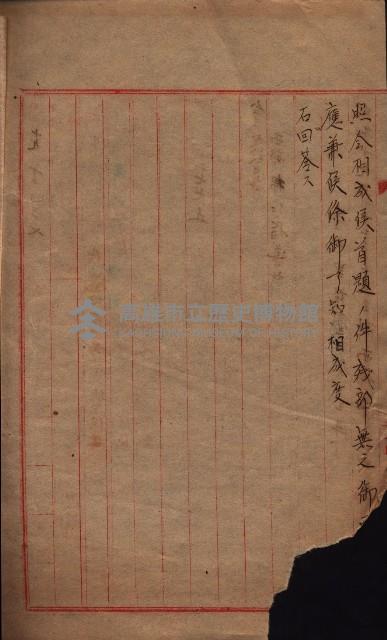 照会相成候首題ノ件残部無之御
應兼候條御了知相成度
右回答ス
高雄市立歷史博物館